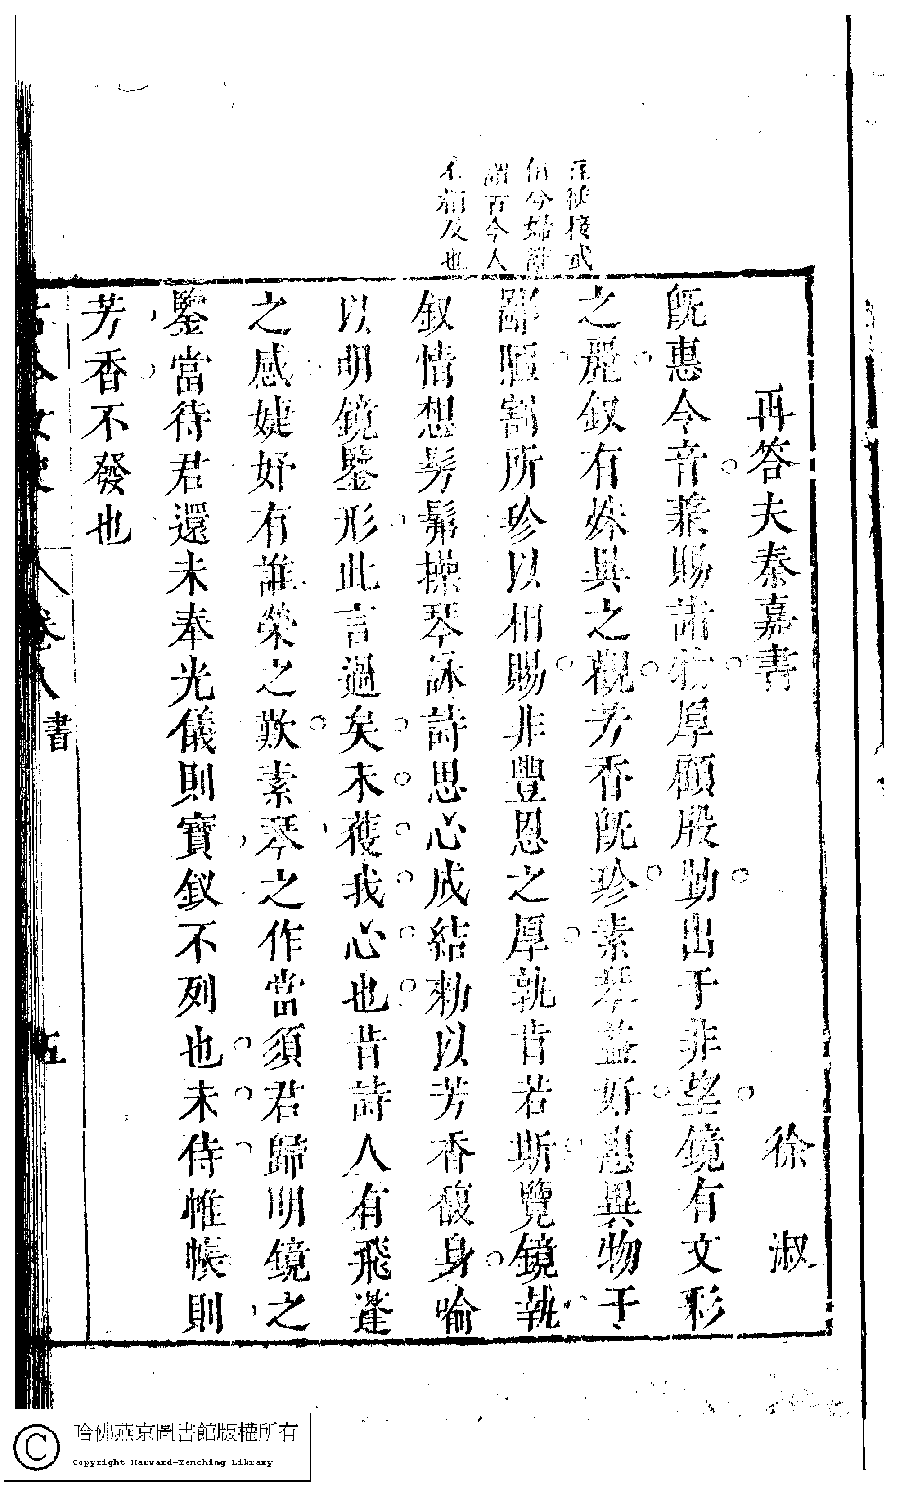 再答夫秦嘉書
徐淑
既惠令音兼賜諸物厚顧慇懃出于非望鏡有文彩
之麗釵有殊異之觀芳香既珍素琴益好惠異物于
鄙陋割所珍以相賜非豐恩之厚孰肯若斯覽鏡執
釵情想髣髴操琴詠詩思心成結勑以芳香馥身喻
以明鏡鑒形此言過矣未獲我心也昔詩人有飛蓬
之感婕妤有誰榮之歎素琴之作當須君歸明鏡之
鑒當待君還未奉光儀則寶釵不列也未侍帷帳則
芳香不發也
謂古今人
不相及也
卷八
書
五
哈佛燕京圖書館版權所有
Copyright Harvard-Yenching Library